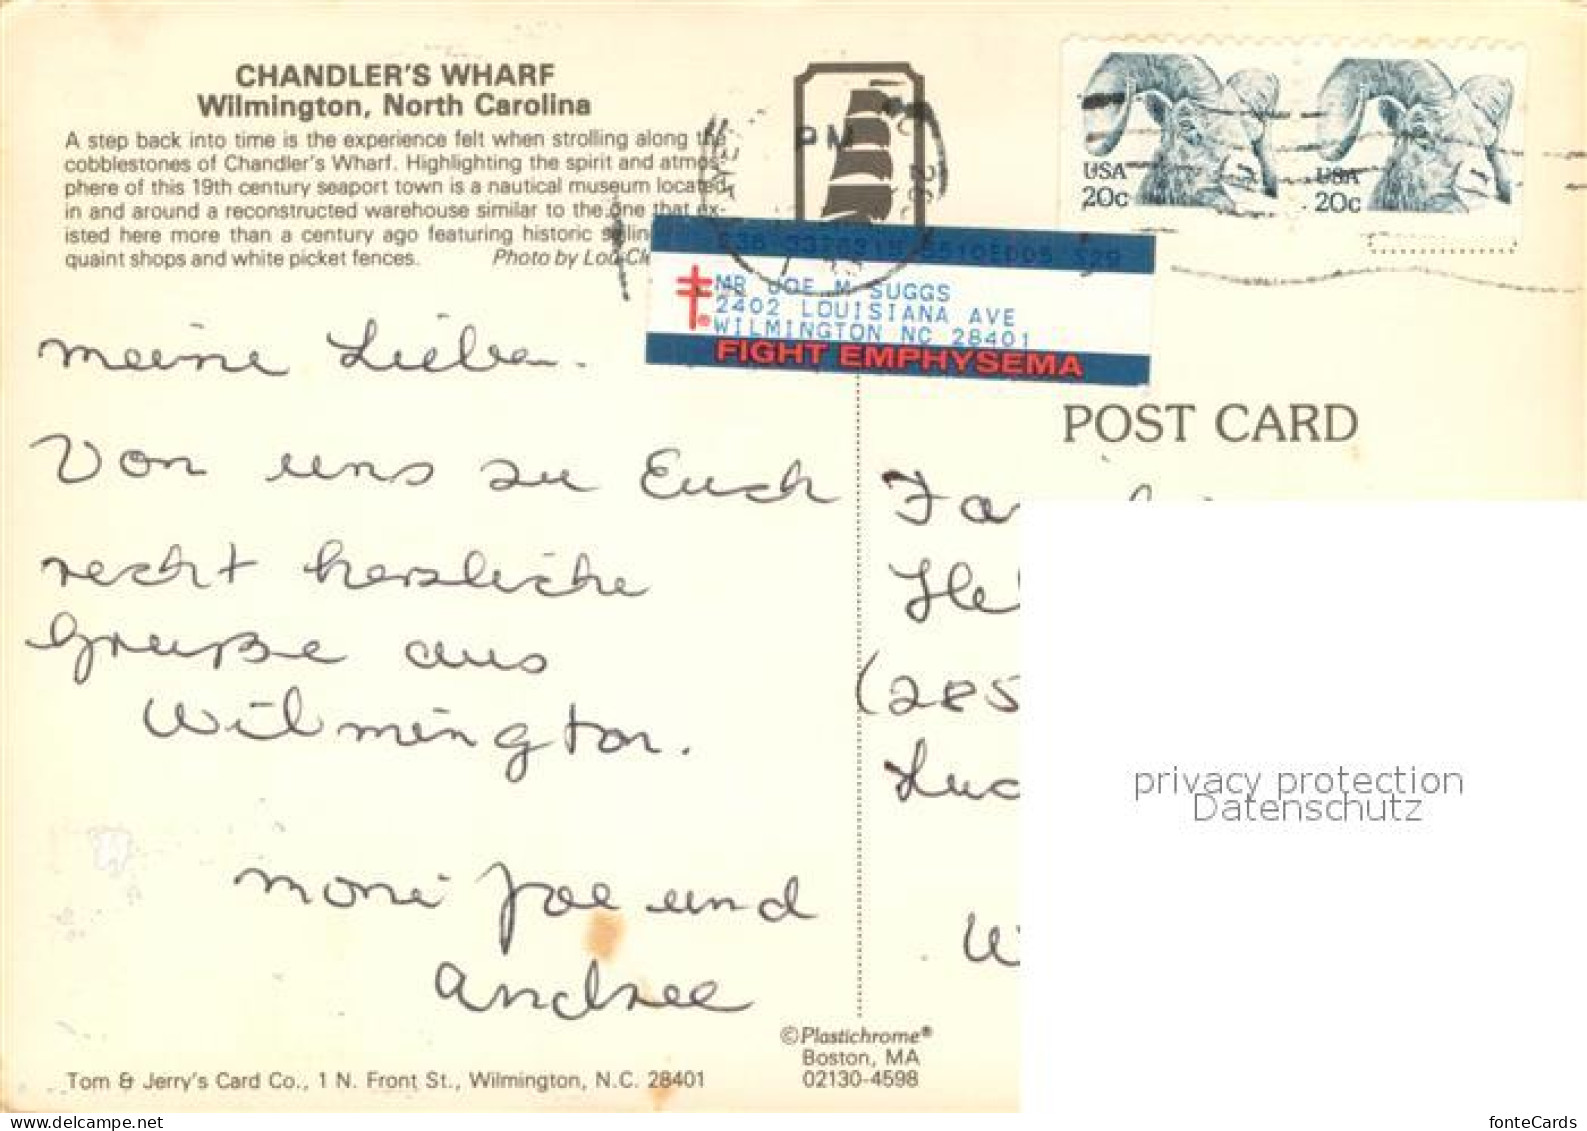 CHANDLER'S WHARF
Wilmington, North Carolina
A step back into time is the experience felt when strolling along the
cobblestones of Chandler's Wharf. Highlighting the spirit and atmos-
phere of this 19th century seaport town is a nautical museum located
in and around a reconstructed warehouse similar to the one that ex-
isted here more than a century ago featuring historic
quaint shops and white picket fences. Photo by Lou
PM
USA
20c
USA
20c
MR JOE M SUGGS
2402 LOUISIANA AVE
WILMINGTON NC 28401
FIGHT EMPHYSEMA
POST CARD
meine Lieben.
Von uns zu Euch
recht herzliche
Grüße aus
Wilmington.
Moni Joe und
Andree
(285
privacy protection
Datenschutz
©Plastichrome®
Boston, MA
02130-4598
Tom & Jerry's Card Co., 1 N. Front St., Wilmington, N.C. 28401
www.delcampe.net
fonteCards